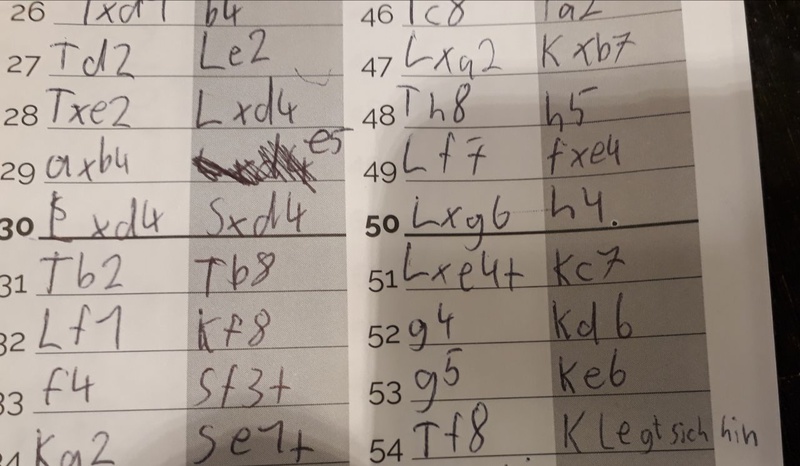 26 Txd1 b4
27 Td2 Le2
28 Txe2 Lxd4
29 axb4 e5
30 xd4 Sxd4
31 Tb2 Tb8
32 Lf1 Kf8
33 f4 Sf3+
34 Kg2 Se1+
46 Tc8 Ta2
47 Lxa2 Kxb7
48 Th8 h5
49 Lf7 fxe4
50 Lxg6 h4.
51 Lxe4+ Kc7
52 g4 Kd6
53 g5 Ke6
54 Tf8 K Legt sich hin